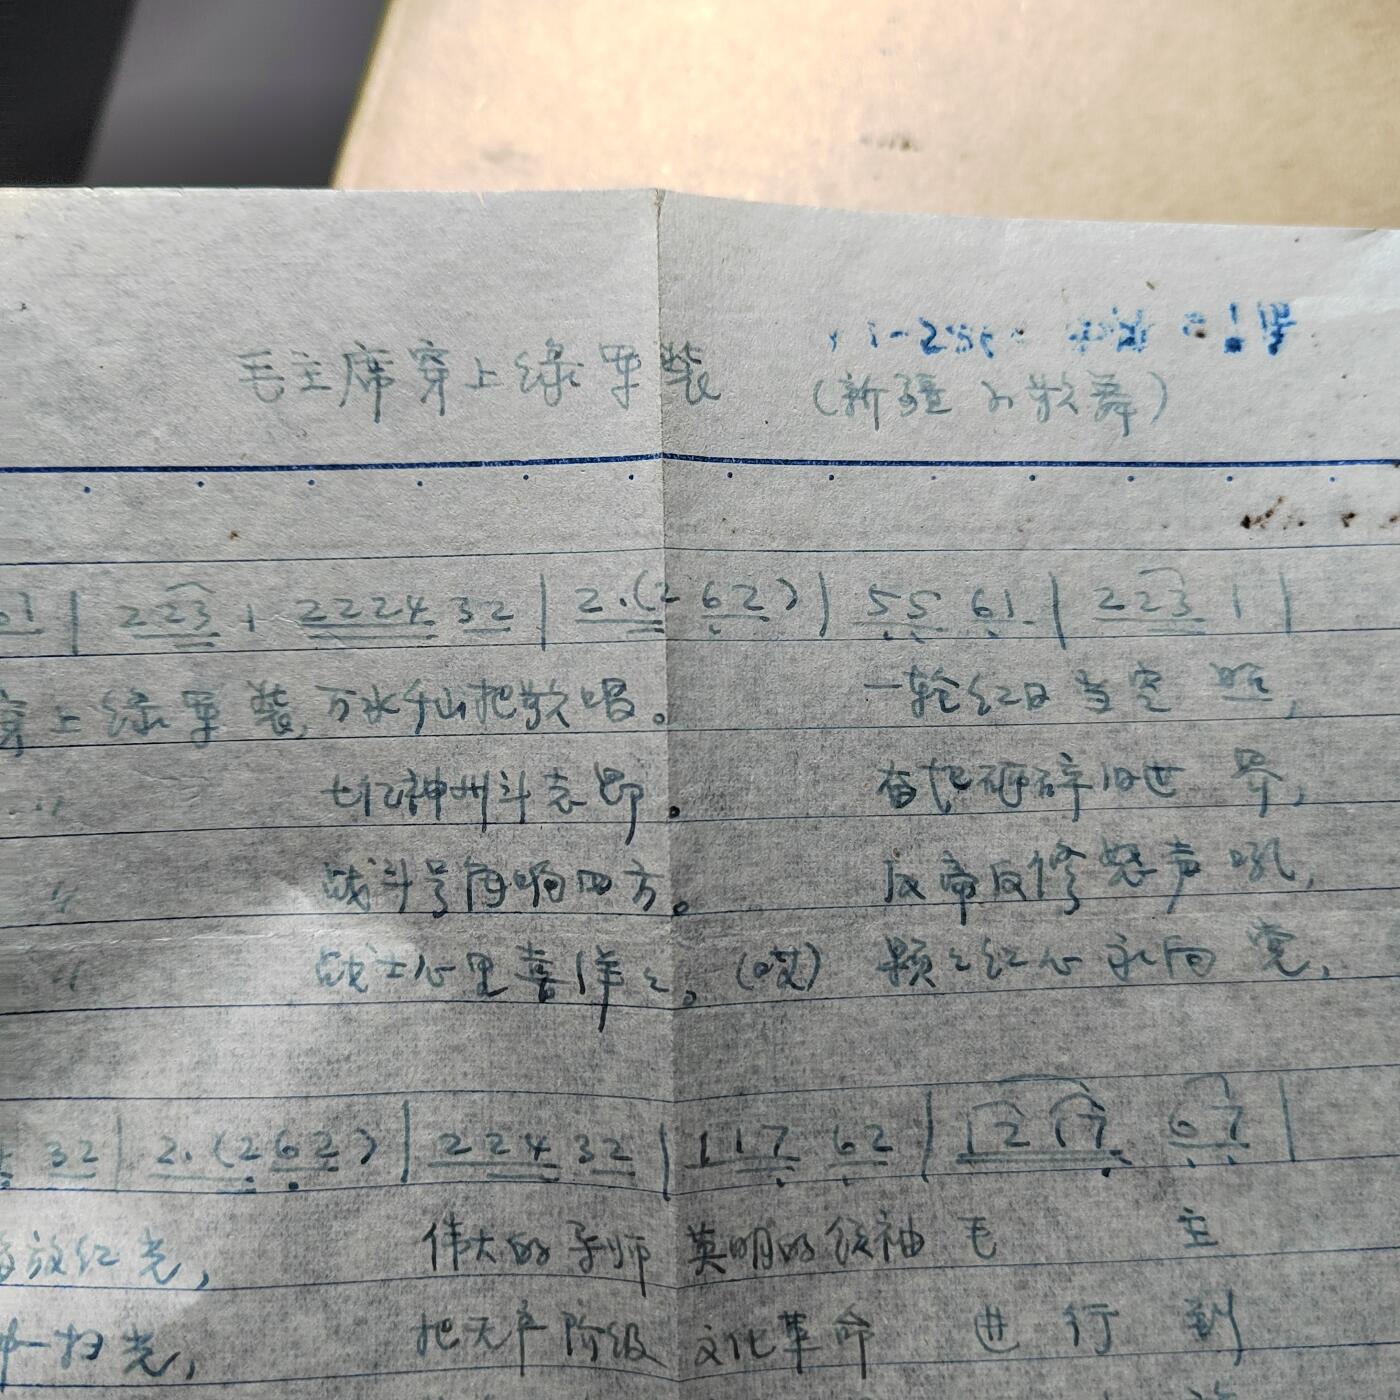 毛主席穿上绿军装
(新疆小歌舞)
61 | 223 1 2224 32 | 2.(2 62) | 55 61 | 223 1 |
穿上绿军装,万水千山把歌唱。 一轮红日当空照,
〃 七亿神州斗志昂。 奋起砸碎旧世界,
〃 战斗号角响四方。 反帝反修怒声吼,
〃 战士心里喜洋々。(哎) 颗々红心永向党,
32 | 2.(2 62) | 224 32 | 117 62 | 12 17 67 |
放红光, 伟大的导师 英明的领袖 毛 主
一扫光, 把无产阶级 文化革命 进行到